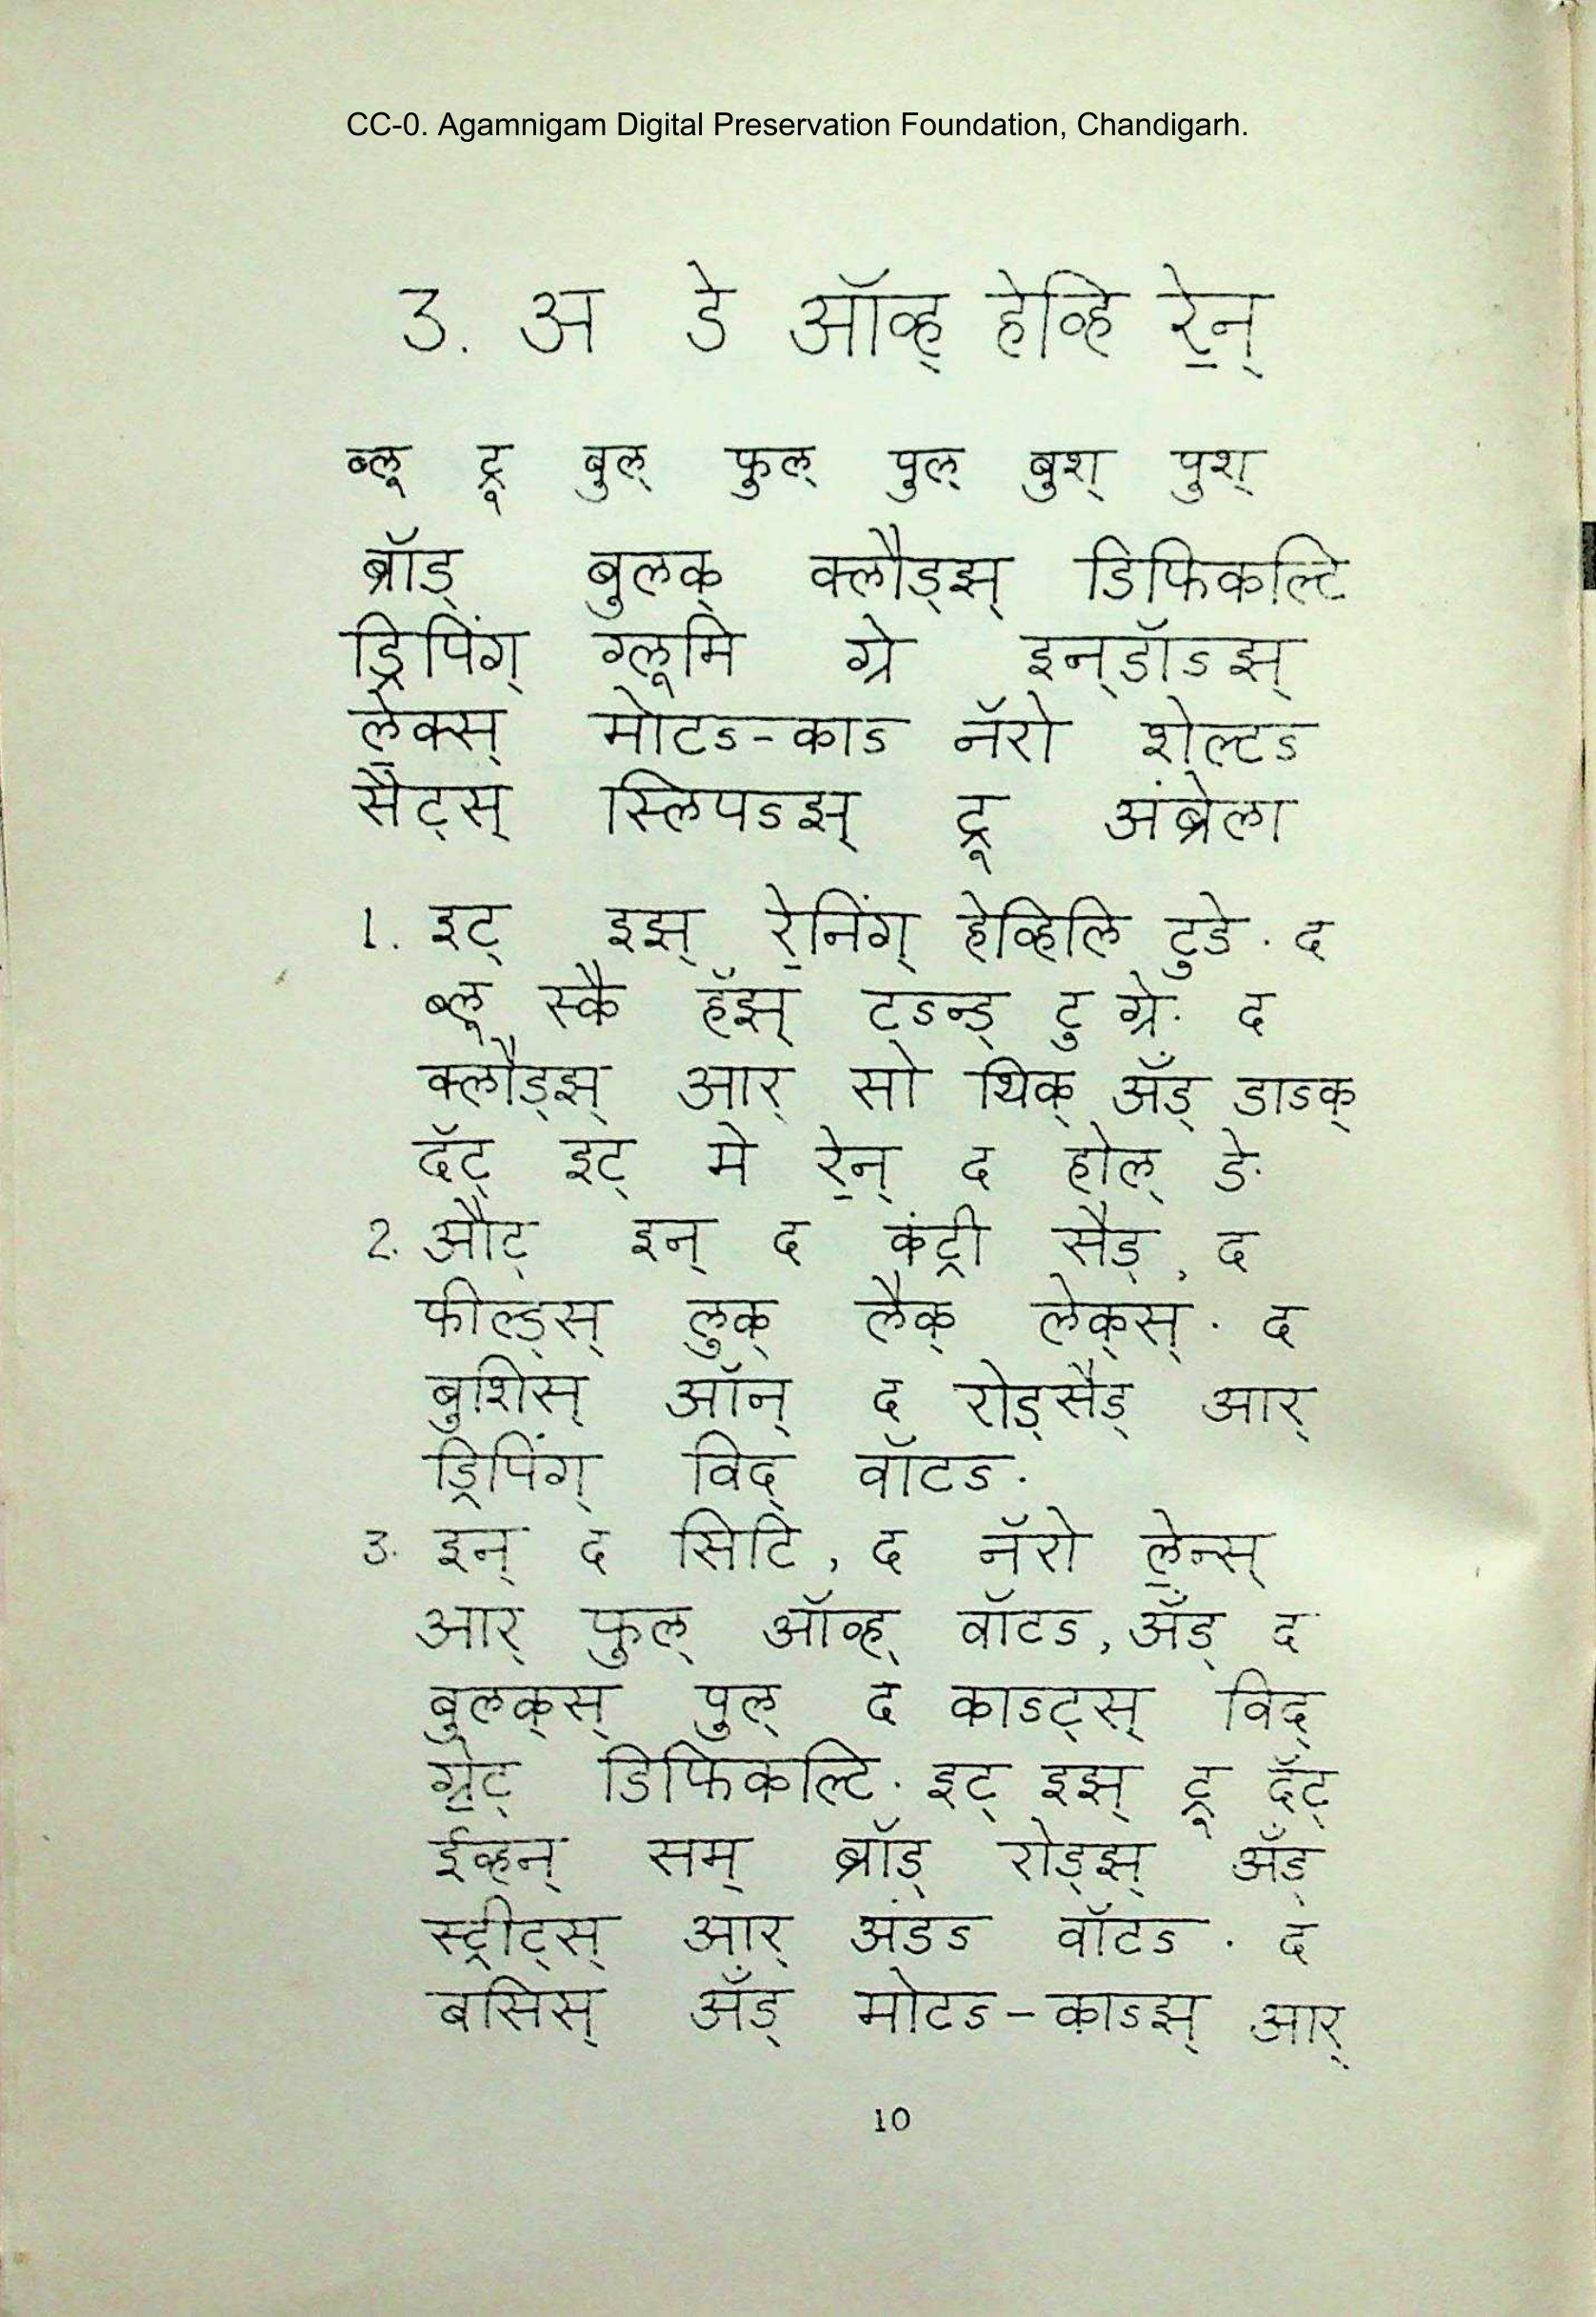 CC-0. Agamnigam Digital Preservation Foundation, Chandigarh.
3. अ डे ऑव्ह् हेव्हि रे॒न्
ब्लू ट्रू बुल् फुल् पुल् बुश् पुश्
ब्रॉड् बुलक् क्लौड्झ् डिफिकल्टि
ड्रिपिंग् ग्लूमि ग्रे इन्‌डॉडझ्
ले॒क्स् मोटड-काड नॅरो शेल्टड
सैट्स् स्लिपडझ् ट्रू अंब्रेला
1. इट् इझ् रे॒निंग् हेव्हिलि टुडे. द
ब्लू स्कै हॅझ् टडन्ड् टु ग्रे. द
क्लौड्झ् आर् सो थिक् अँड् डाडक्
दॅट् इट् मे रे॒न् द होल् डे.
2. औट् इन् द कंट्री सैड्, द
फील्ड्स् लुक् लैक् लेक्‌स्. द
बुशिस् ऑन् द रोड्सैड् आर्
ड्रिपिंग् विद् वॉटड.
3. इन् द सिटि, द नॅरो ले॒न्स्
आर् फुल् ऑव्ह् वॉटड, अँड् द
बुलक्‌स् पुल् द काडट्स् विद्
ग्रे॒ट् डिफिकल्टि. इट् इझ् ट्रू दॅट्
ईव्हन् सम् ब्रॉड् रोड्झ् अँड्
स्ट्रीट्स् आर् अंडड वॉटड. द
बसिस् अँड् मोटड-काडझ् आर्
10